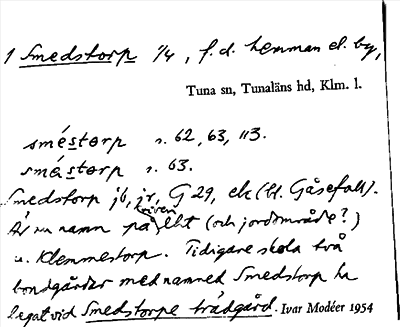 1 Smedstorp 1/4, f.d. hemman el. by,
Tuna sn, Tunaläns hd, Klm. l.
sméstorp s. 62, 63, 113.
smástorp s. 63.
Smedstorp jb, jr, G 29, ek (bl. Gåsefall).
Är nu namn på kvarn (och jordområde?)
u. Klemmestorp. Tidigare skola två
bondgårdar med namnet Smedstorp ha
legat vid Smedstorpe trädgård. Ivar Modéer 1954